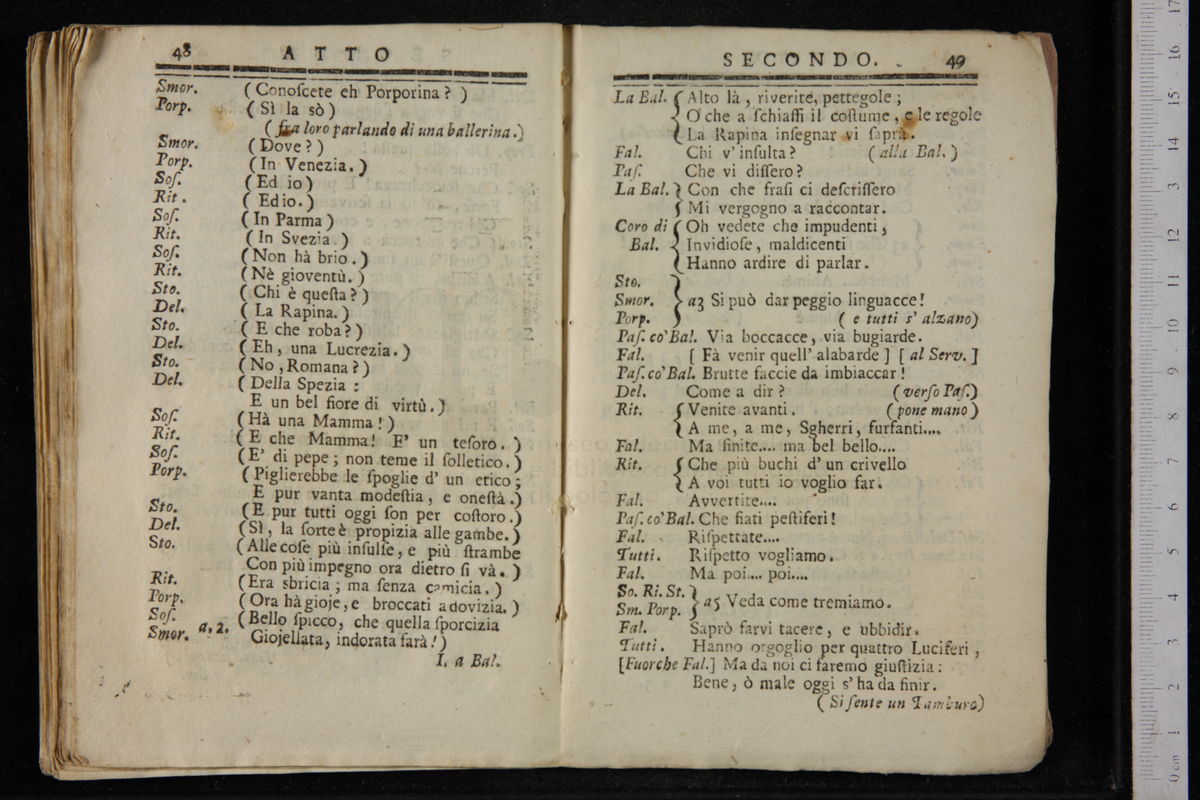 48 ATTO
Smor. (Conoſcete eh Porporina? )
Porp. (Sì la sò)
(fra loro parlando di una ballerina.)
Smor. (Dove?)
Porp. (In Venezia.)
Soſ. (Ed io)
Rit. (Ed io.)
Soſ. (In Parma)
Rit. (In Svezia.)
Soſ. (Non hà brio.)
Rit. (Nè gioventù.)
Sto. (Chi è queſta?)
Del. (La Rapina.)
Sto. (E che roba?)
Del. (Eh, una Lucrezia.)
Sto. (No, Romana?)
Del. (Della Spezia:
E un bel fiore di virtù.)
Soſ. (Hà una Mamma!)
Rit. (E che Mamma! E' un teſoro. )
Soſ. (E' di pepe; non teme il ſolletico.)
Porp. (Piglierebbe le ſpoglie d' un etico;
E pur vanta modeſtia, e oneſtà.)
Sto. (E pur tutti oggi ſon per coſtoro.)
Del. (Sì, la ſorte è propizia alle gambe.)
Sto. (Alle coſe più inſulſe, e più ſtrambe
Con più impegno ora dietro ſi và. )
Rit. (Era sbricia; ma ſenza camicia.)
Porp. (Ora hà gioje, e broccati a dovizia.)
Soſ. (Bello ſpicco, che quella ſporcizia
Smor. a. 2. Giojellata, indorata farà!)
I. a Bal.
SECONDO. 49
La Bal. { Alto là, riverite, pettegole;
O che a ſchiaffi il coſtume, e le regole
La Rapina inſegnar vi ſaprà.
Fal. Chi v' inſulta? (alla Bal.)
Paſ. Che vi diſſero?
La Bal. } Con che fraſi ci deſcriſſero
Mi vergogno a raccontar.
Coro di { Oh vedete che impudenti,
Bal. Invidioſe, maldicenti
Hanno ardire di parlar.
Sto.
Smor. } a3 Si può dar peggio linguacce!
Porp. ( e tutti s' alzano)
Paſ. co' Bal. Via boccacce, via bugiarde.
Fal. [ Fà venir quell' alabarde ] [ al Serv. ]
Paſ. co' Bal. Brutte faccie da imbiaccar!
Del. Come a dir? (verſo Paſ.)
Rit. { Venite avanti. (pone mano)
A me, a me, Sgherri, furfanti....
Fal. Ma finite.... ma bel bello....
Rit. { Che più buchi d' un crivello
A voi tutti io voglio far.
Fal. Avvertite....
Paſ. co' Bal. Che fiati peſtiferi!
Fal. Riſpettate....
Tutti. Riſpetto vogliamo.
Fal. Ma poi.... poi....
So. Ri. St.
Sm. Porp. } a5 Veda come tremiamo.
Fal. Saprò farvi tacere, e ubbidir.
Tutti. Hanno orgoglio per quattro Luciferi,
[Fuorche Fal.] Ma da noi ci faremo giuſtizia:
Bene, ò male oggi s' ha da finir.
(Si ſente un Tamburo)
0 cm 1 2 3 4 5 6 7 8 9 10 11 12 13 14 15 16 17